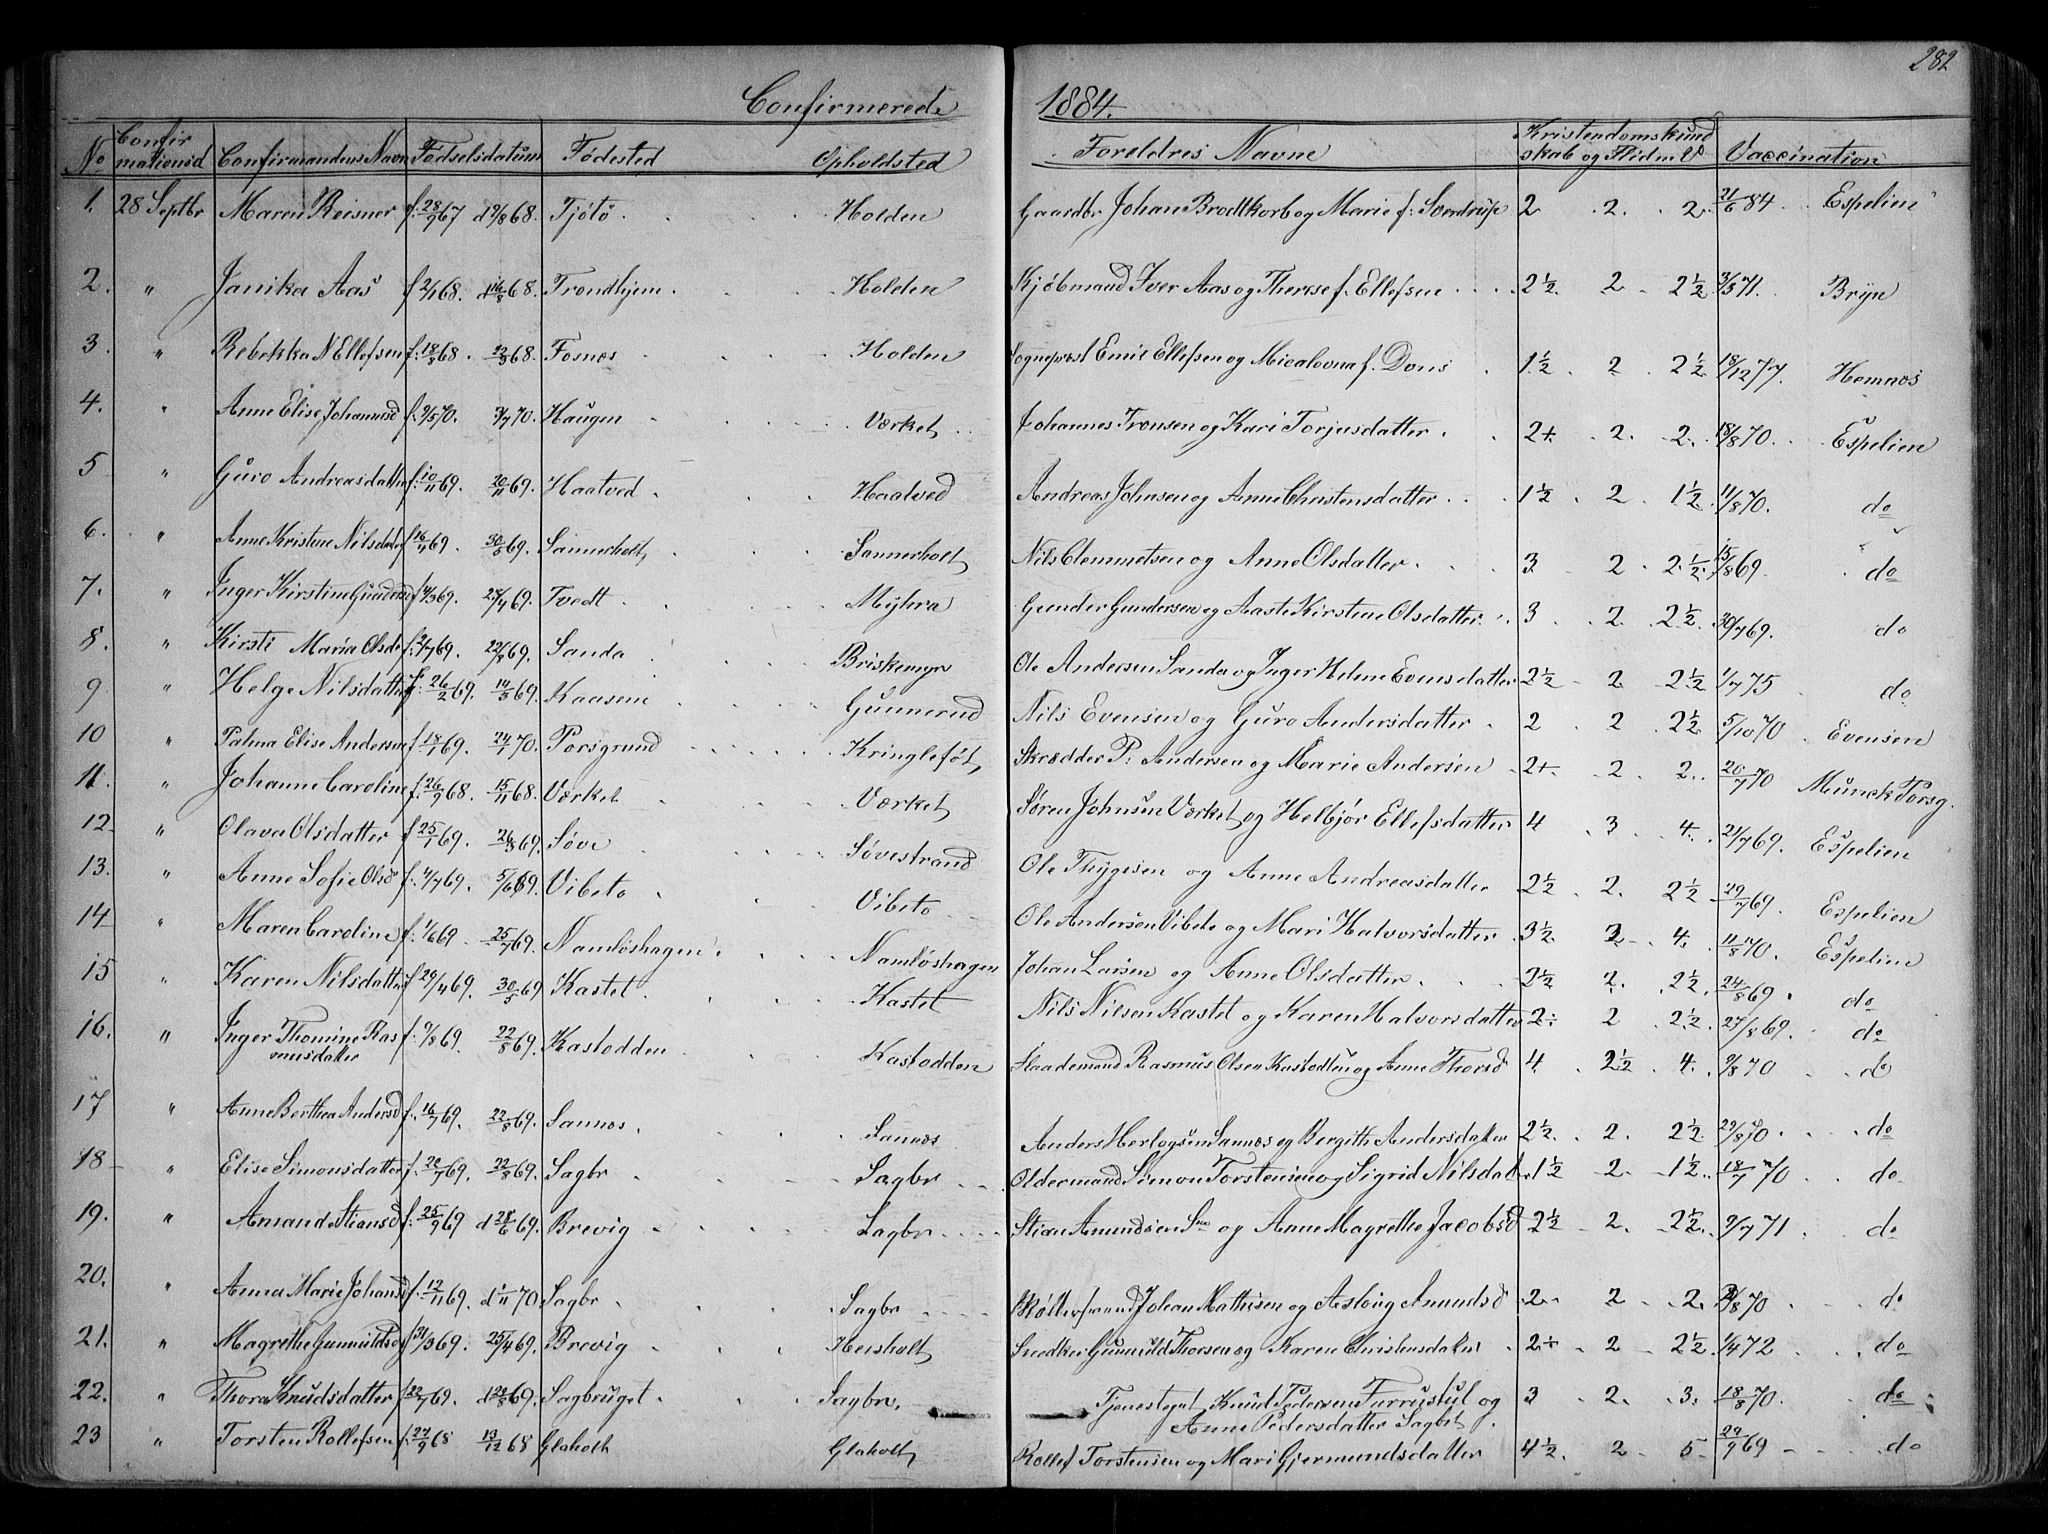 282
Confirmerede 1884.
No Confirmationsd Confirmandens Navn Fødselsdatum Fødested Opholdsted Foreldres Navne Kristendomskundskab og Flid m V Vaccination
1. 28 Septbr Maren Reisner f. 28/9 67 d 9/8 68. Tjötö. Holden Gaardbr Johan Brodtkorb og Marie f: Sverdrup 2 2. 2. 21/6 84 Espelien
2. " Janika Aas f 2/1 68. d 16/8 68. Trondhjem. Holden Kjøbmand Iver Aas og Therese f. Ellefsen 2½ 2 2½ 3/5 71. Bryn
3. " Rebekka N Ellefsen f. 18/8 68. 68. Fosnes Holden Sogneprest Emil Ellefsen og f. Dons 1½ 2 2½ 18/12 77. Hemnæs
4. " Anne Elise Johannesd f. 9/5 70. 3/7 70. Haugen Værket Johannes Tronsen og Kari Torjusdatter. 2+. 2. 2. 18/8 70. Espelien
5 " Guro Andreasdatter f. 10/11 69. 20/11 69. Haatved Haatved Andreas Johnsen og Anne Christensdatter 1½ 2 1½ 11/8 70. do
6. " Anne Kristene Nilsdatter f 16/4 69. 30/5 69. Sannerholt, Sannerholt, Nils Clemmetsen og Anne Olsdatter. 3 2 2½ 15/8 69. do
7. " Inger Kirstine Gundersd f 4/3 69. 25/4 69. Tvedt Myhra Gunder Gundersen og Aaste Kirstene Olsdatter. 3 2 2½ 30/7 69. do
8. " Kirsti Maria Olsd f. 2/7 69. 22/8 69. Sanda Briskemyr Ole Andersen Sanda og Inger Helene Evensdatter 2½ 2 2½ 1/7 75 do
9 " Helge Nilsdatter f. 26/2 69. 14/3 69. Kaasene Gunnerud Nils Evensen og Guro Andersdatter 2 2 2½ 5/10 70 Evensen
10 " Palma Elise Andersen f 18/1 69. 24/1 70. Porsgrund Kringlefot, Skrædder P: Andersen og Marie Andersen 2+. 2 2. 20/7 70 Munck Porsg.
11. " Johanne Caroline f. 26/9 68. 15/11 68. Værket Værket Søren Johnsen Værket og Helbjør Ellefsdatter 4 3 4. 21/7 69. Espelien
12 " Olava Olsdatter f 25/1 69. 26/3 69. Søve Søvestrand Ole Thygesen og Anne Andreasdatter 2½ 2. 2½ 29/7 69. Espelien
13. " Anne Sofie Olsd f. 4/7 69. 5/6 69. Vibeto Vibeto Ole Andersen Vibeto og Mari Halvorsdatter 3½ 4. 11/8 70. Espelien
14 " Maren Caroline f. 1/6 69 25/7 69. Namløshagen. Namløshagen Johan Larsen og Anne Olsdatter 2½ 2. 2½ 24/8 69. do
15 " Karen Nilsdatter f 29/4 69. 30/5 69 Kastet. Kastet Nils Nilsen Kastet og Karen Halvorsdatter 2÷ 2 2½ 27/8 69. do
16. " Inger Thomine Rasmusdatter f. 9/8 69. 22/8 69. Kastodden Kastodden Rasmus Olsen Kastodden og Anne Thorsd 4. 2½ 4. 9/8 70 do
17 " Anne Berthea Andersd f. 16/7 69. 22/8 69. Sannes. Sannes Anders Herlogsen Sannes og Bergith Andersdatter 2½. 2. 2½. 29/8 70 do
18 " Elise Simonsdatter f. 20/7 69. 22/8 69. Sagbr Sagbr Oldermand Simon Torstensen og Sigrid Nilsdat 1½ 2 1½ 18/7 70 do
19. " Amand Stiansd f. 25/9 69 d 28/6 69. Brevig Sagbr Stian Amundsen og Anne Magrethe Jacobsd 2½ 2. 2½. 2/7 71. do
20. " Anna Marie Johansd f. 12/11 69. d 1/11 70. Sagbr Sagbr Johan Mathisen og Asloug Amundsd 2 2 2. 8 70 do
21. " Magrethe Gunnulds f 31/3 69. 25/4 69. Brevig Heisholt, Snedker Gunnuld Thorsen og Karen Christensdatter 2÷ 2 2½ 1/4 72 do
22. " Thora Knudsdatter f 22/7 69. d 22/8 69. Sagbruget Sagbr. Tjenestegut Knud Pedersen Farrustul og 3 2. 3. 18/8 70. do
Anne Pedersdatter Sagbr.
23 " Torsten Rollefsen f. 27/9 68 13/12 68 Glaholt Glaholt, Rollef Torstensen og Mari Gjermundsdatter 4½ 2 5. 29/9 69 do